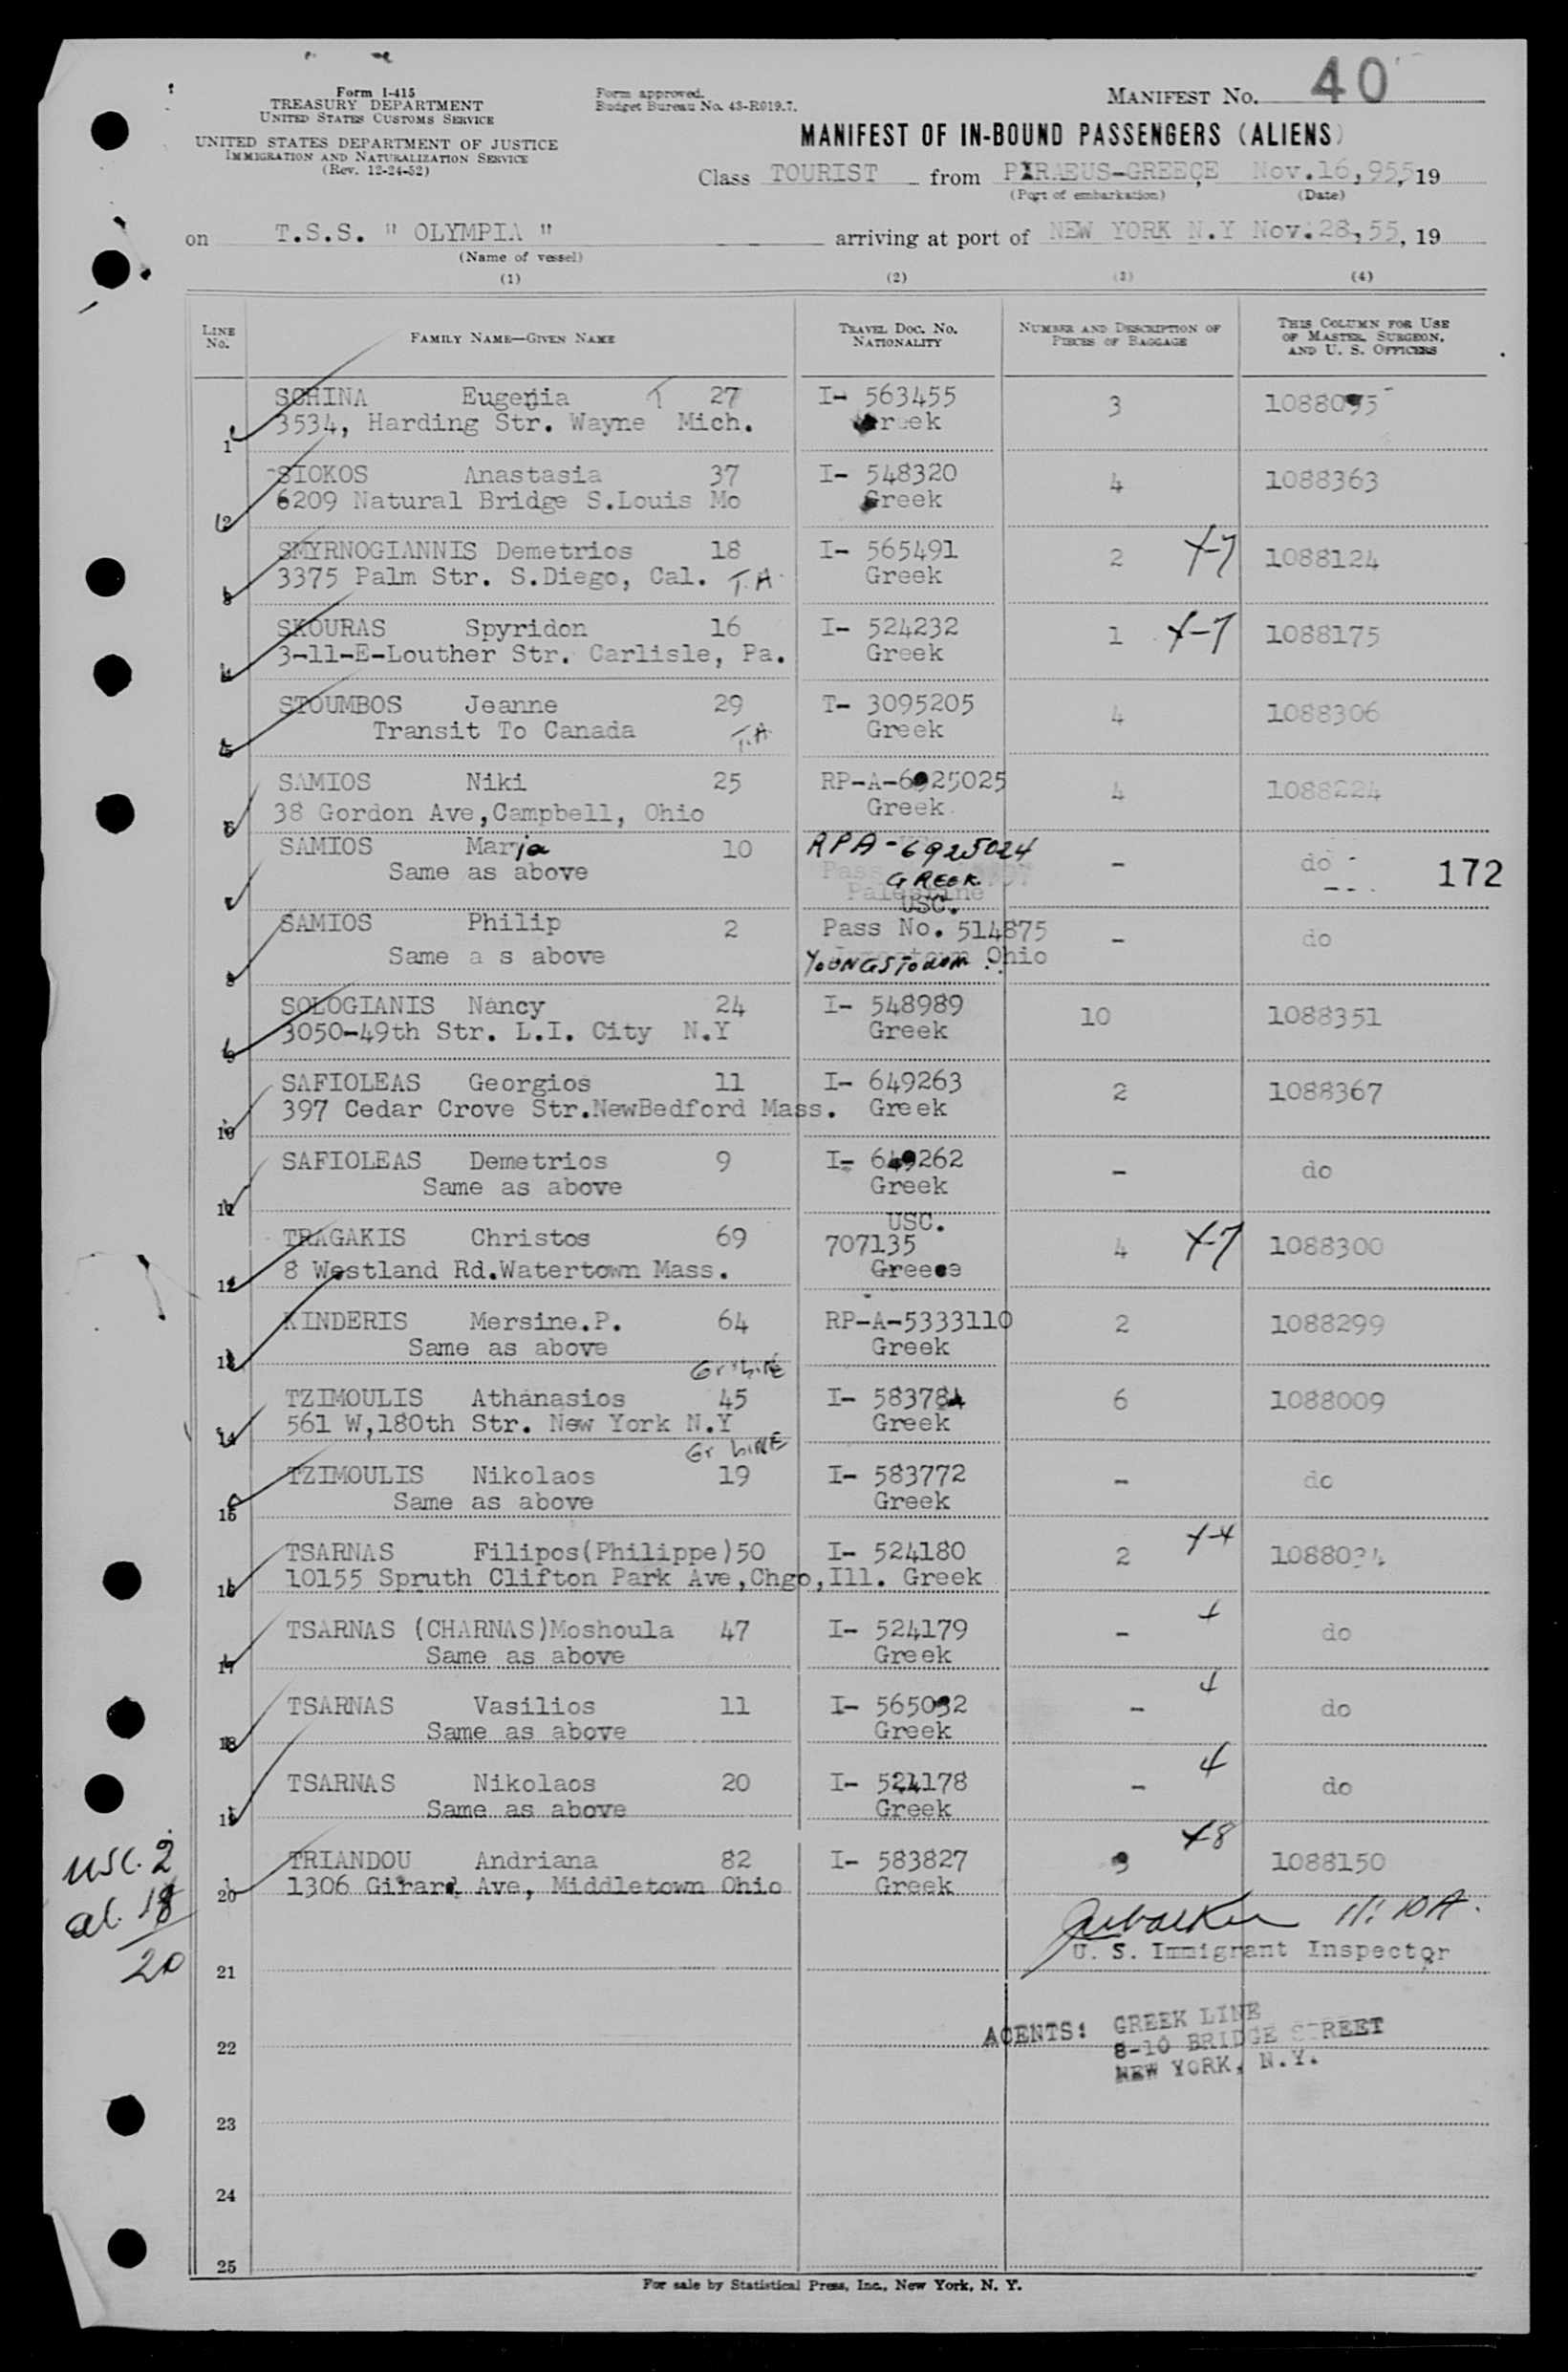 Form I-415
TREASURY DEPARTMENT
UNITED STATES CUSTOMS SERVICE
UNITED STATES DEPARTMENT OF JUSTICE
IMMIGRATION AND NATURALIZATION SERVICE
(Rev. 12-24-52)
Form approved.
Budget Bureau No. 43-R019.7.
MANIFEST No. 40
MANIFEST OF IN-BOUND PASSENGERS (ALIENS)
Class TOURIST from PIRAEUS-GREECE, Nov.16,955, 19
(Port of embarkation) (Date)
on T.S.S. " OLYMPIA " arriving at port of NEW YORK N.Y Nov.28,55, 19
(Name of vessel)
(1) (2) (3) (4)
LINE No. FAMILY NAME—GIVEN NAME TRAVEL DOC. No. NATIONALITY NUMBER AND DESCRIPTION OF PIECES OF BAGGAGE THIS COLUMN FOR USE OF MASTER, SURGEON, AND U. S. OFFICERS
SCHINA Eugenia T 27 I- 563455 3 1088095
1 3534, Harding Str. Wayne Mich. Greek
SIOKOS Anastasia 37 I- 548320 4 1088363
2 6209 Natural Bridge S.Louis Mo Greek
SMYRNOGIANNIS Demetrios 18 I- 565491 2 X-7 1088124
3 3375 Palm Str. S.Diego, Cal. T.A. Greek
SKOURAS Spyridon 16 I- 524232 1 X-7 1088175
4 3-11-E-Louther Str. Carlisle, Pa. Greek
STOUMBOS Jeanne 29 T- 3095205 4 1088306
5 Transit To Canada T.A Greek
SAMIOS Niki 25 RP-A-6925025 4 1088224
6 38 Gordon Ave,Campbell, Ohio Greek
SAMIOS Maria 10 RPA-6925024 - do
7 Same as above GREEK 172
Palestine
USC.
SAMIOS Philip 2 Pass No. 514875 - do
8 Same a s above YOUNGSTOWN Ohio
SOLOGIANIS Nancy 24 I- 548989 10 1088351
9 3050-49th Str. L.I. City N.Y Greek
SAFIOLEAS Georgios 11 I- 649263 2 1088367
10 397 Cedar Crove Str.NewBedford Mass. Greek
SAFIOLEAS Demetrios 9 I- 649262 - do
11 Same as above Greek
USC.
TRAGAKIS Christos 69 707135 4 X-7 1088300
12 8 Westland Rd.Watertown Mass. Greece
KINDERIS Mersine.P. 64 RP-A-5333110 2 1088299
13 Same as above Greek
Gr LINE
TZIMOULIS Athanasios 45 I- 583784 6 1088009
14 561 W,180th Str. New York N.Y Greek
Gr LINE
TZIMOULIS Nikolaos 19 I- 583772 - do
15 Same as above Greek
TSARNAS Filipos(Philippe)50 I- 524180 2 X-4 1088034
16 10155 Spruth Clifton Park Ave,Chgo,Ill. Greek
TSARNAS (CHARNAS)Moshoula 47 I- 524179 - 4 do
17 Same as above Greek
TSARNAS Vasilios 11 I- 565032 - 4 do
18 Same as above Greek
TSARNAS Nikolaos 20 I- 524178 - 4 do
19 Same as above Greek
TRIANDOU Andriana 82 I- 583827 3 X8 1088150
20 1306 Girard Ave, Middletown Ohio Greek
USC. 2
al. 18
20
11:10A.
U. S. Immigrant Inspector
21
AGENTS: GREEK LINE
8-10 BRIDGE STREET
NEW YORK, N.Y.
22
23
24
25
For sale by Statistical Press, Inc., New York, N. Y.